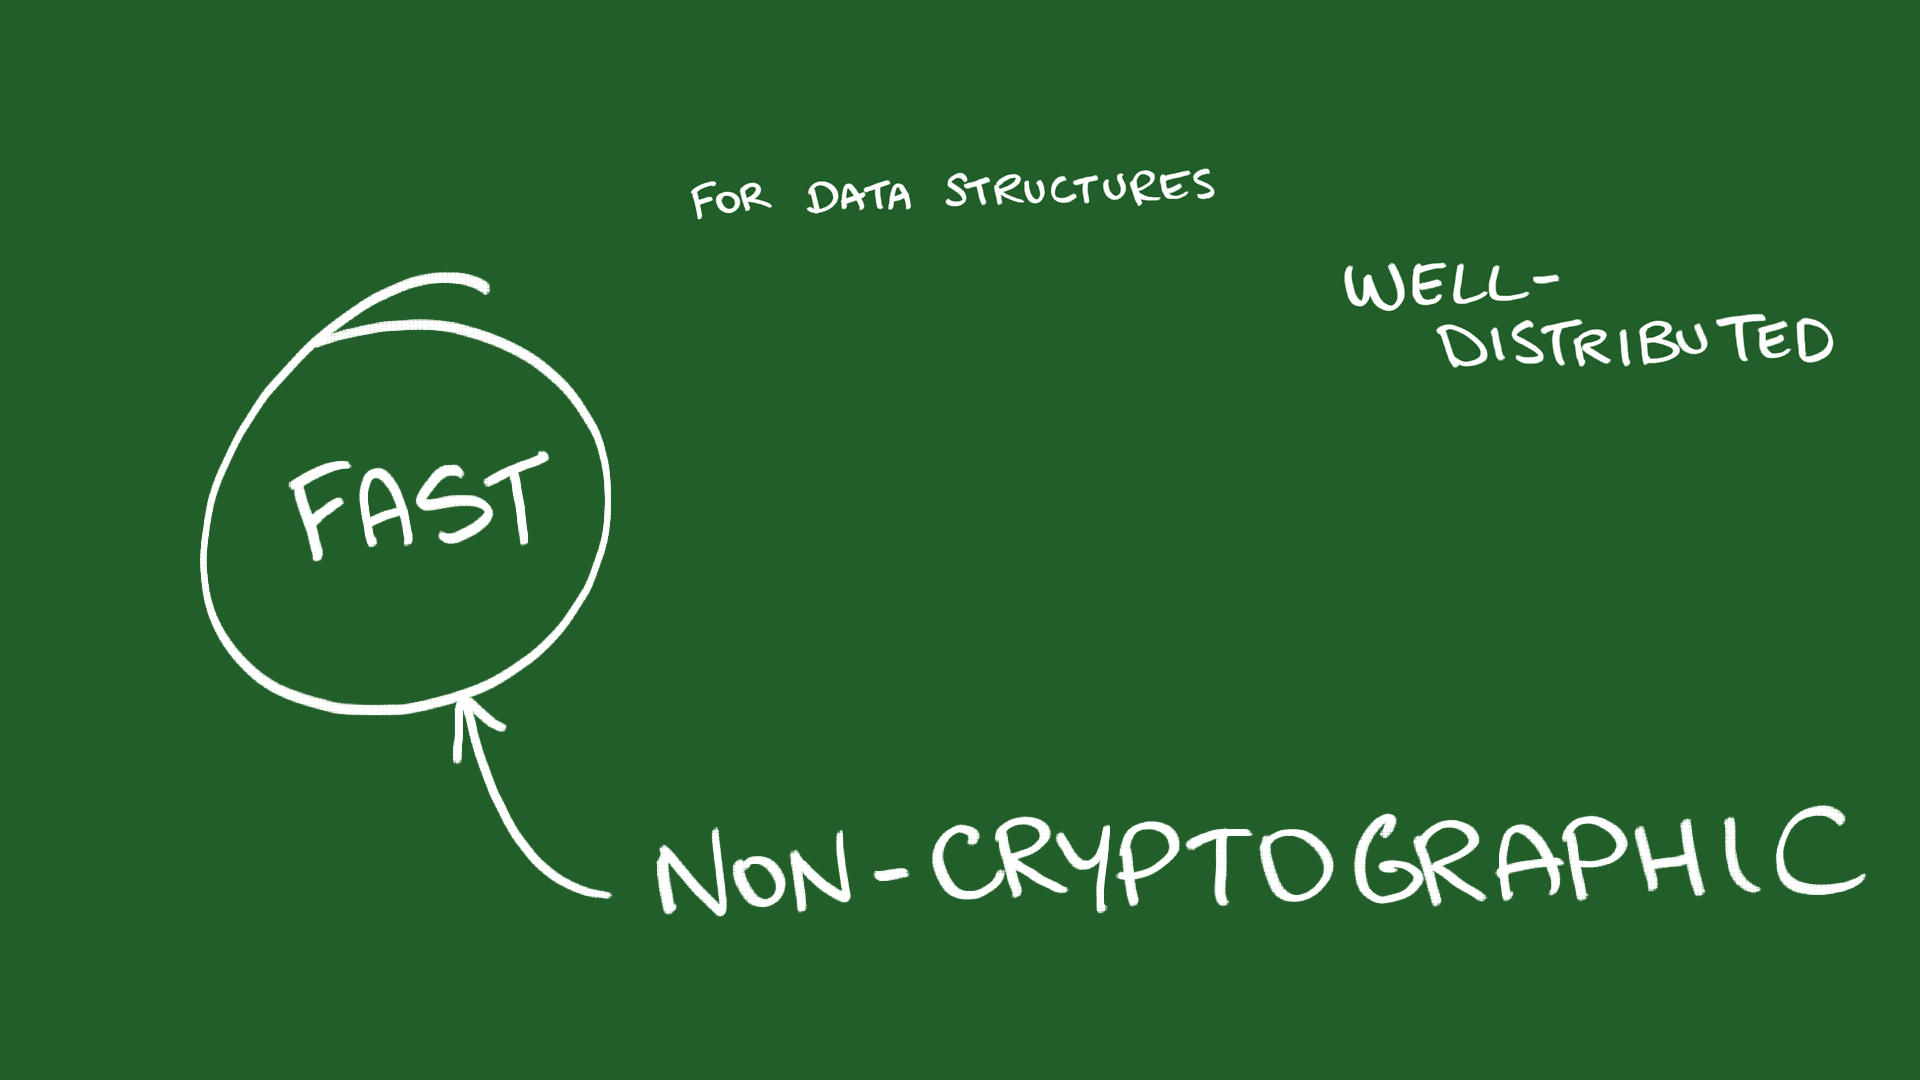 FOR DATA STRUCTURES
WELL-
DISTRIBUTED
FAST
NON-CRYPTOGRAPHIC